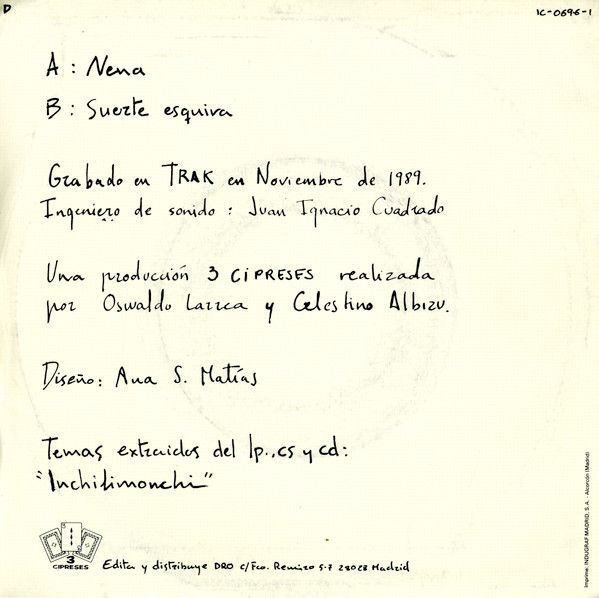 D
1C-0696-1
A: Nena
B: Suerte esquiva
Grabado en TRAK en Noviembre de 1989.
Ingeniero de sonido: Juan Ignacio Cuadrado
Una producción 3 CIPRESES realizada
por Oswaldo Larrea y Celestino Albizu.
Diseño: Ana S. Matías
Temas extraidos del lp., cs y cd:
"Inchilimonchi"
3
CIPRESES
Edita y distribuye DRO C/Fco. Remiro 5-7 28028 Madrid
Imprime: INDUGRAF MADRID, S.A. - Alcorcón (Madrid)